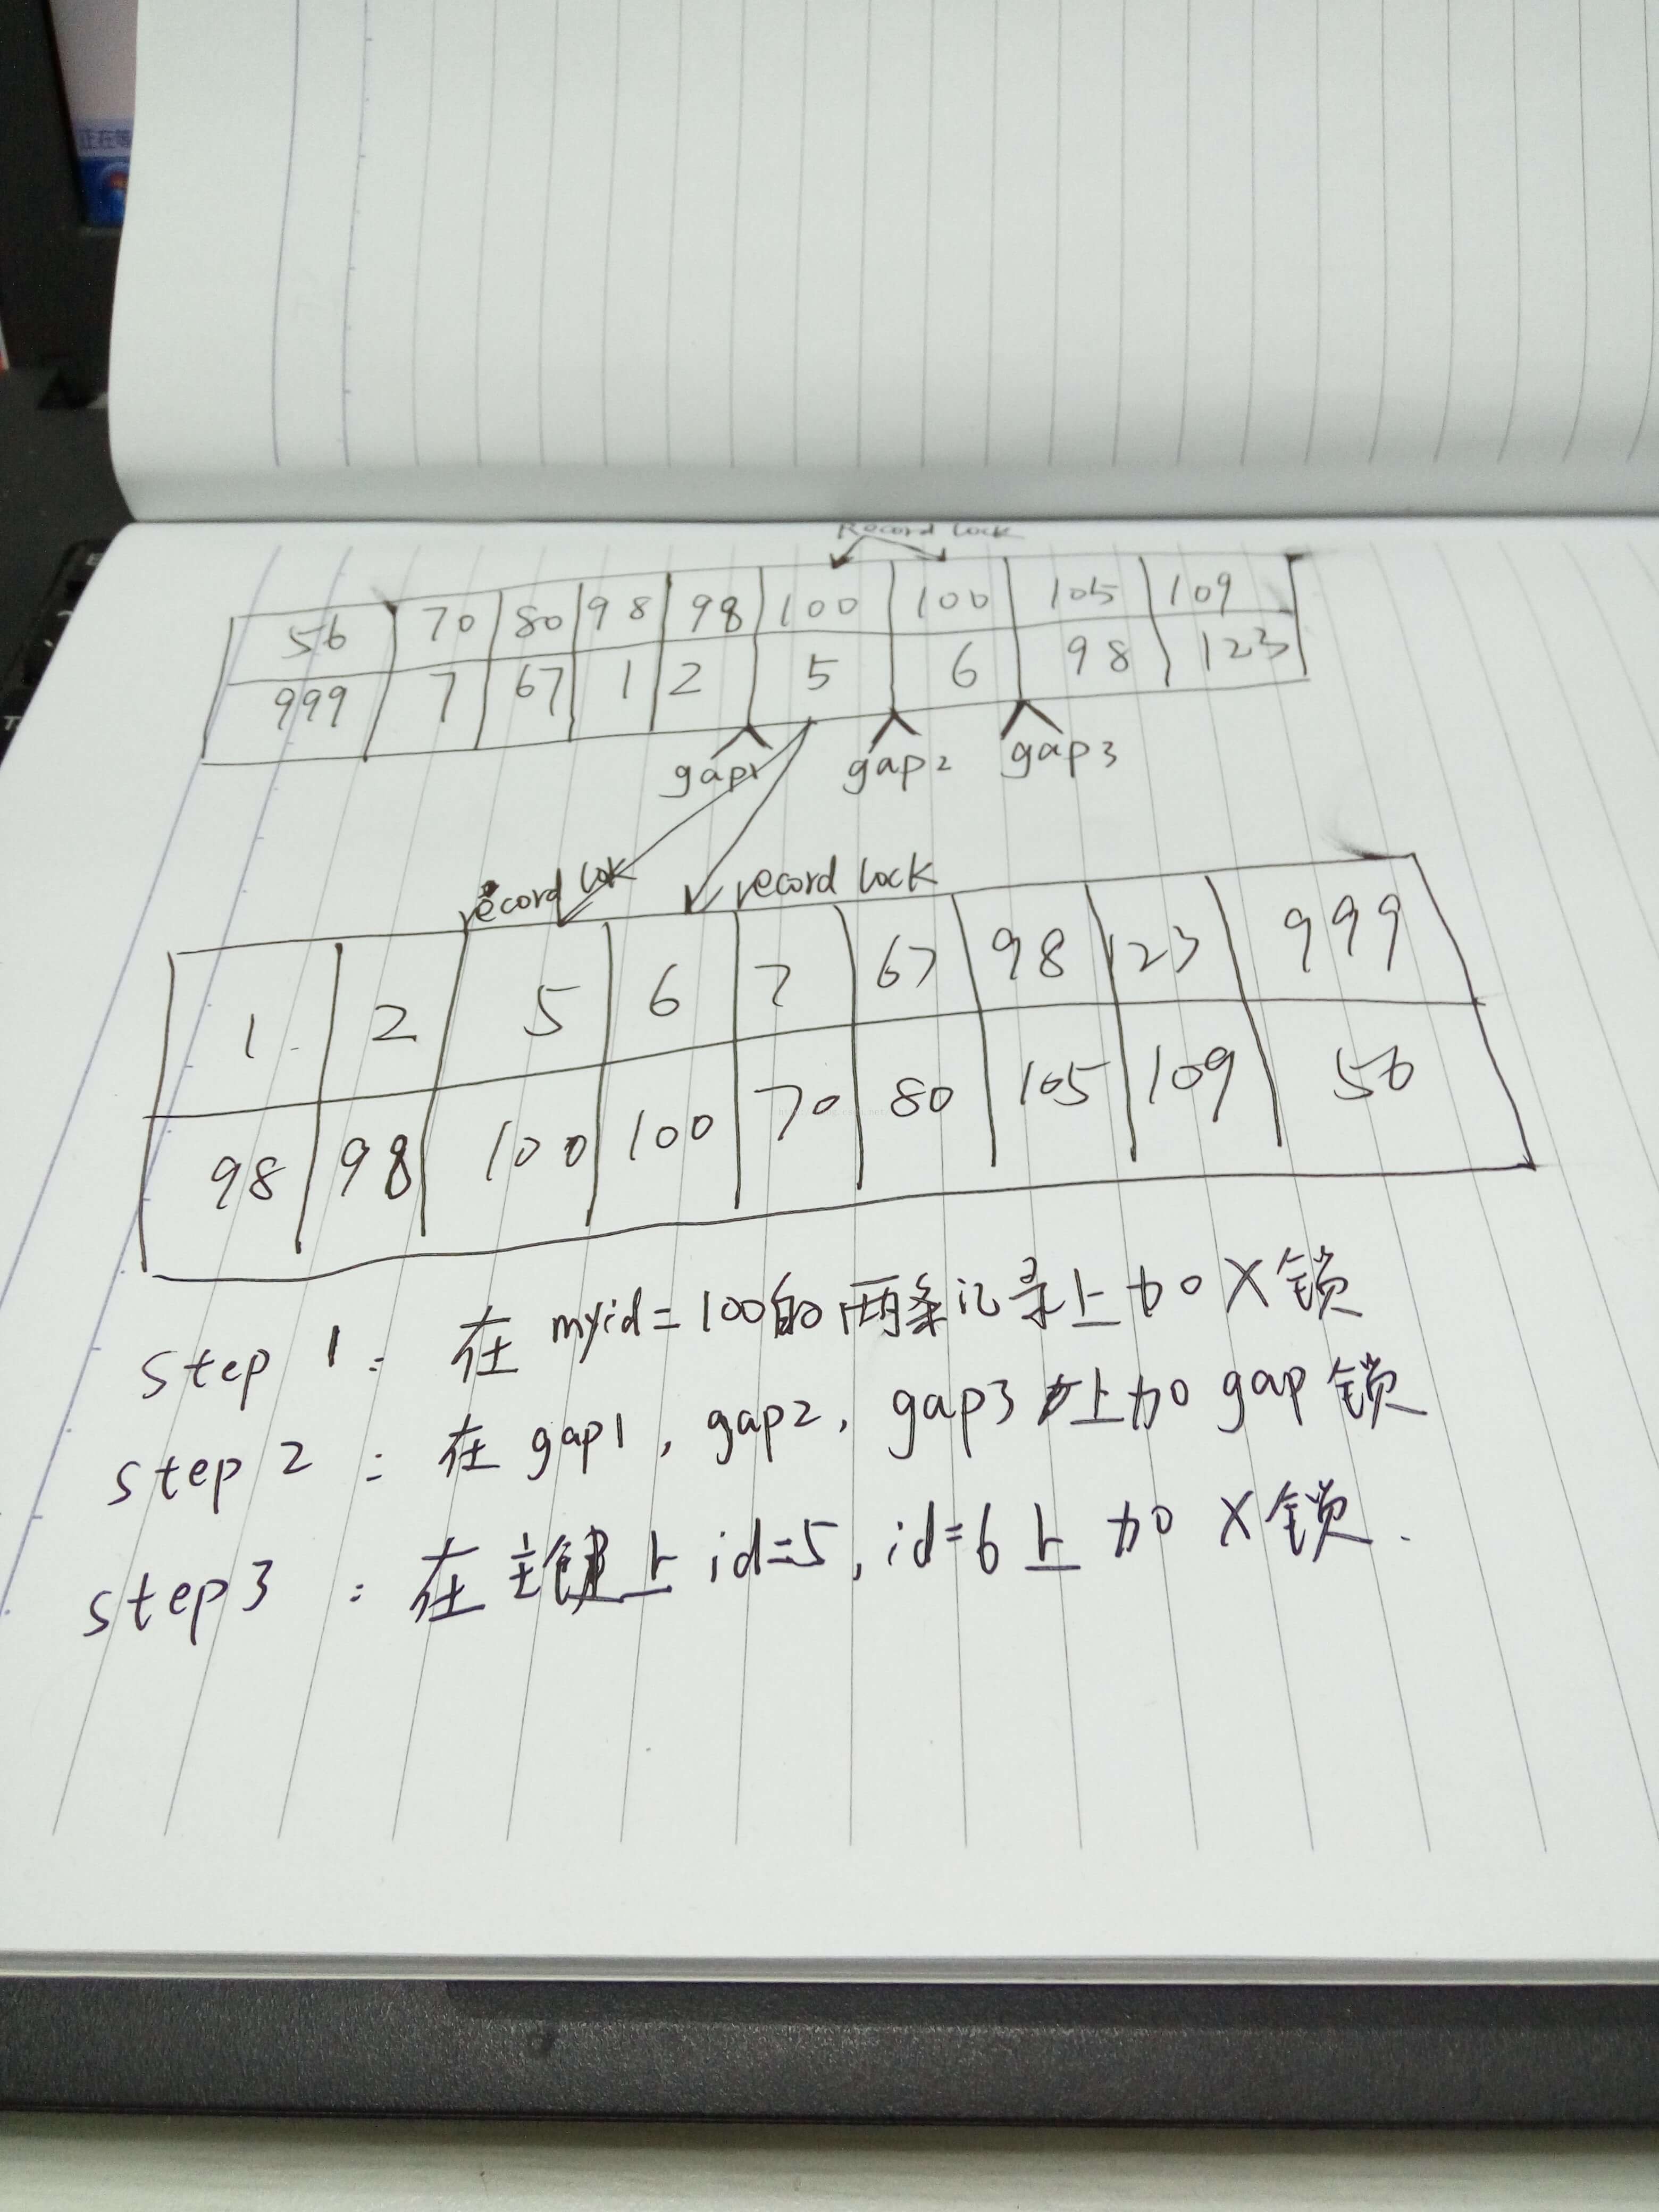 正在等
Record lock
56 70 80 98 98 100 100 105 109
999 7 67 1 2 5 6 98 123
gap1 gap2 gap3
record lok record lock
1 2 5 6 7 67 98 123 999
98 98 100 100 70 80 105 109 56
step 1: 在 myid=100的两条记录上加X锁
step 2: 在 gap1, gap2, gap3 上加 gap 锁
step3: 在主键上 id=5, id=6 上 加 X锁.